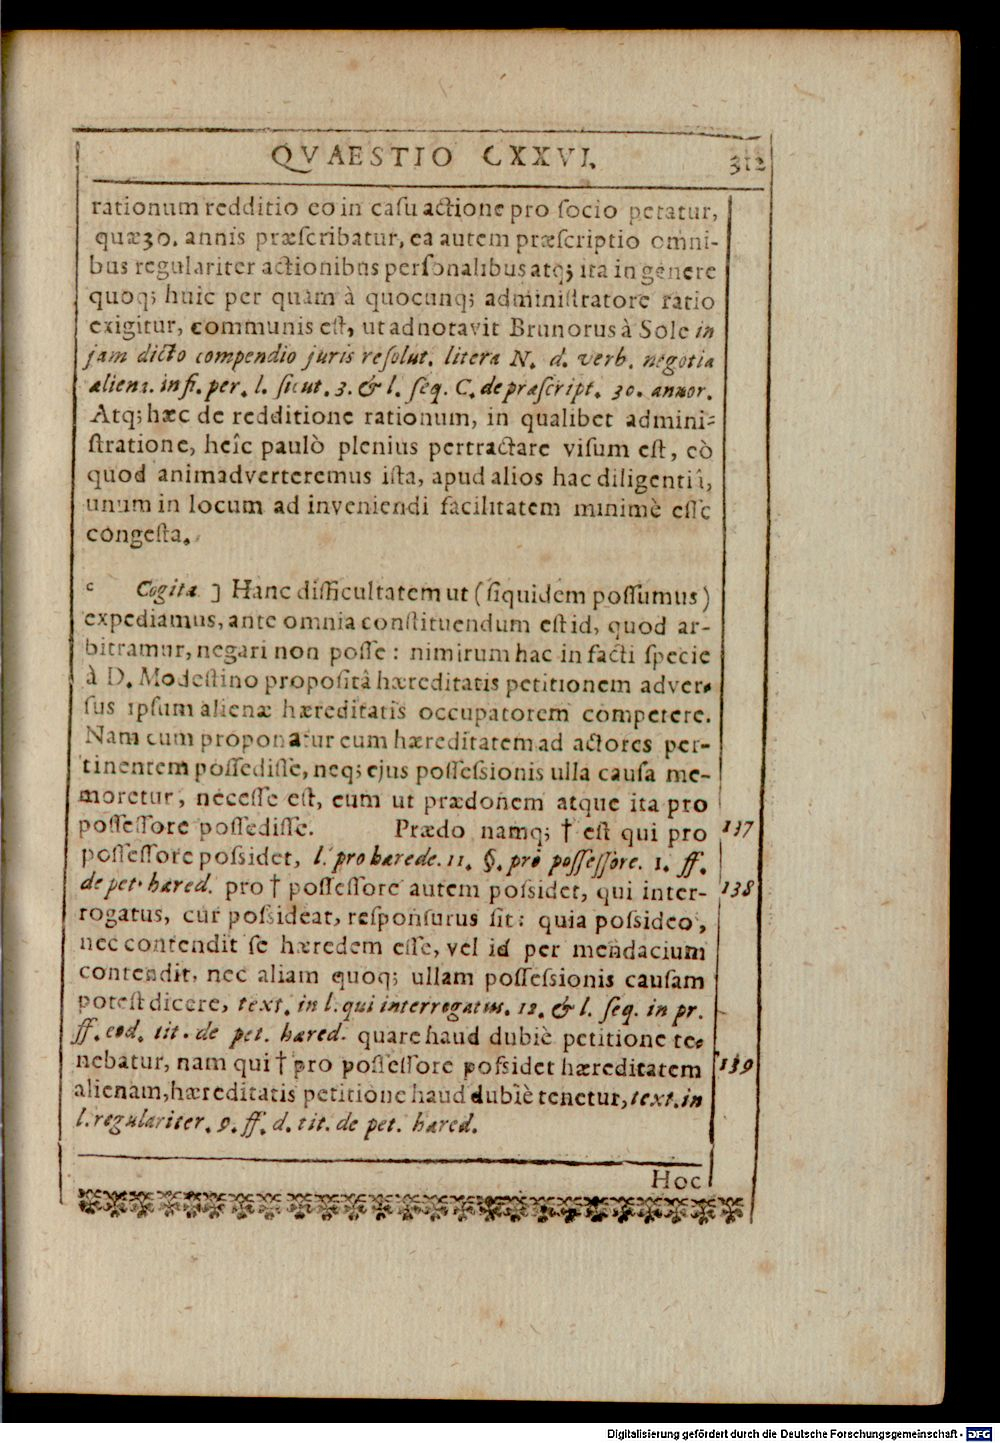 QVAESTIO CXXVI. 312
rationum redditio eo in casu actione pro socio petatur,
quæ 30. annis præscribatur, ea autem præscriptio omni-
bus regulariter actionibus personalibus atq; ita in genere
quoq; huic per quam à quocunq; administratore ratio
exigitur, communis est, ut adnotavit Brunorus à Sole in
jam dicto compendio juris resolut. litera N. d. verb. negotia
aliena. in fi. per. l. sicut. 3. & l. seq. C. de præscript. 30. annor.
Atq; hæc de redditione rationum, in qualibet admini-
stratione, heîc paulò plenius pertractare visum est, eò
quod animadverteremus ista, apud alios hac diligentiâ,
unum in locum ad inveniendi facilitatem minimè esse
congesta.
c Cogita ] Hanc difficultatem ut (siquidem possumus)
expediamus, ante omnia constituendum est id, quod ar-
bitramur, negari non posse: nimirum hac in facti specie
à D. Modestino propositâ hæreditatis petitionem adver-
sus ipsum alienæ hæreditatis occupatorem competere.
Nam cum proponatur eum hæreditatem ad actores per-
tinentem possedisse, neq; ejus possessionis ulla causa me-
moretur, necesse est, eum ut prædonem atque ita pro
possessore possedisse. Prædo namq; † est qui pro 137
possessore possidet, l. pro hærede. 11. §. pro possessore. 1. ff.
de pet. hæred. pro † possessore autem possidet, qui inter- 138
rogatus, cur possideat, responsurus sit: quia possideo,
nec contendit se hæredem esse, vel id per mendacium
contendit, nec aliam quoq; ullam possessionis causam
potest dicere, text. in l. qui interrogatus. 12. & l. seq. in pr.
ff. eod. tit. de pet. hæred. quare haud dubiè petitione te-
nebatur, nam qui † pro possessore possidet hæreditatem 139
alienam, hæreditatis petitione haud dubiè tenetur, text. in
l. regulariter. 9. ff. d. tit. de pet. hæred.
Hoc
Digitalisierung gefördert durch die Deutsche Forschungsgemeinschaft - DFG